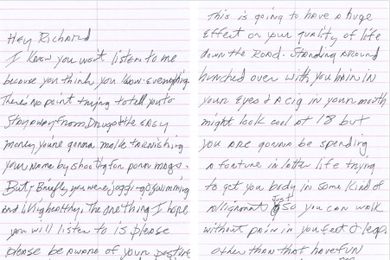 Hey Richard
I know you won't listen to me
because you think you know everything
There's no point trying to tell you to
stay away from Drugs the easy
money you're gonna make tarnishing
your name by shooting for porn mags.
But, Briefly, you were jogging swimming
and living healthy. The one thing I hope
you will listen to is please
please be aware of your posture
This is going to have a huge
effect on your quality of life
down the Road. Standing around
hunched over with you hair in
your eyes & a cig in your mouth
might look cool at 18 but
you are gonna be spending
a fortune in later life trying
to get you body in some kind of
allignment so you can walk
without pain in you feet & legs.
other than that have fun